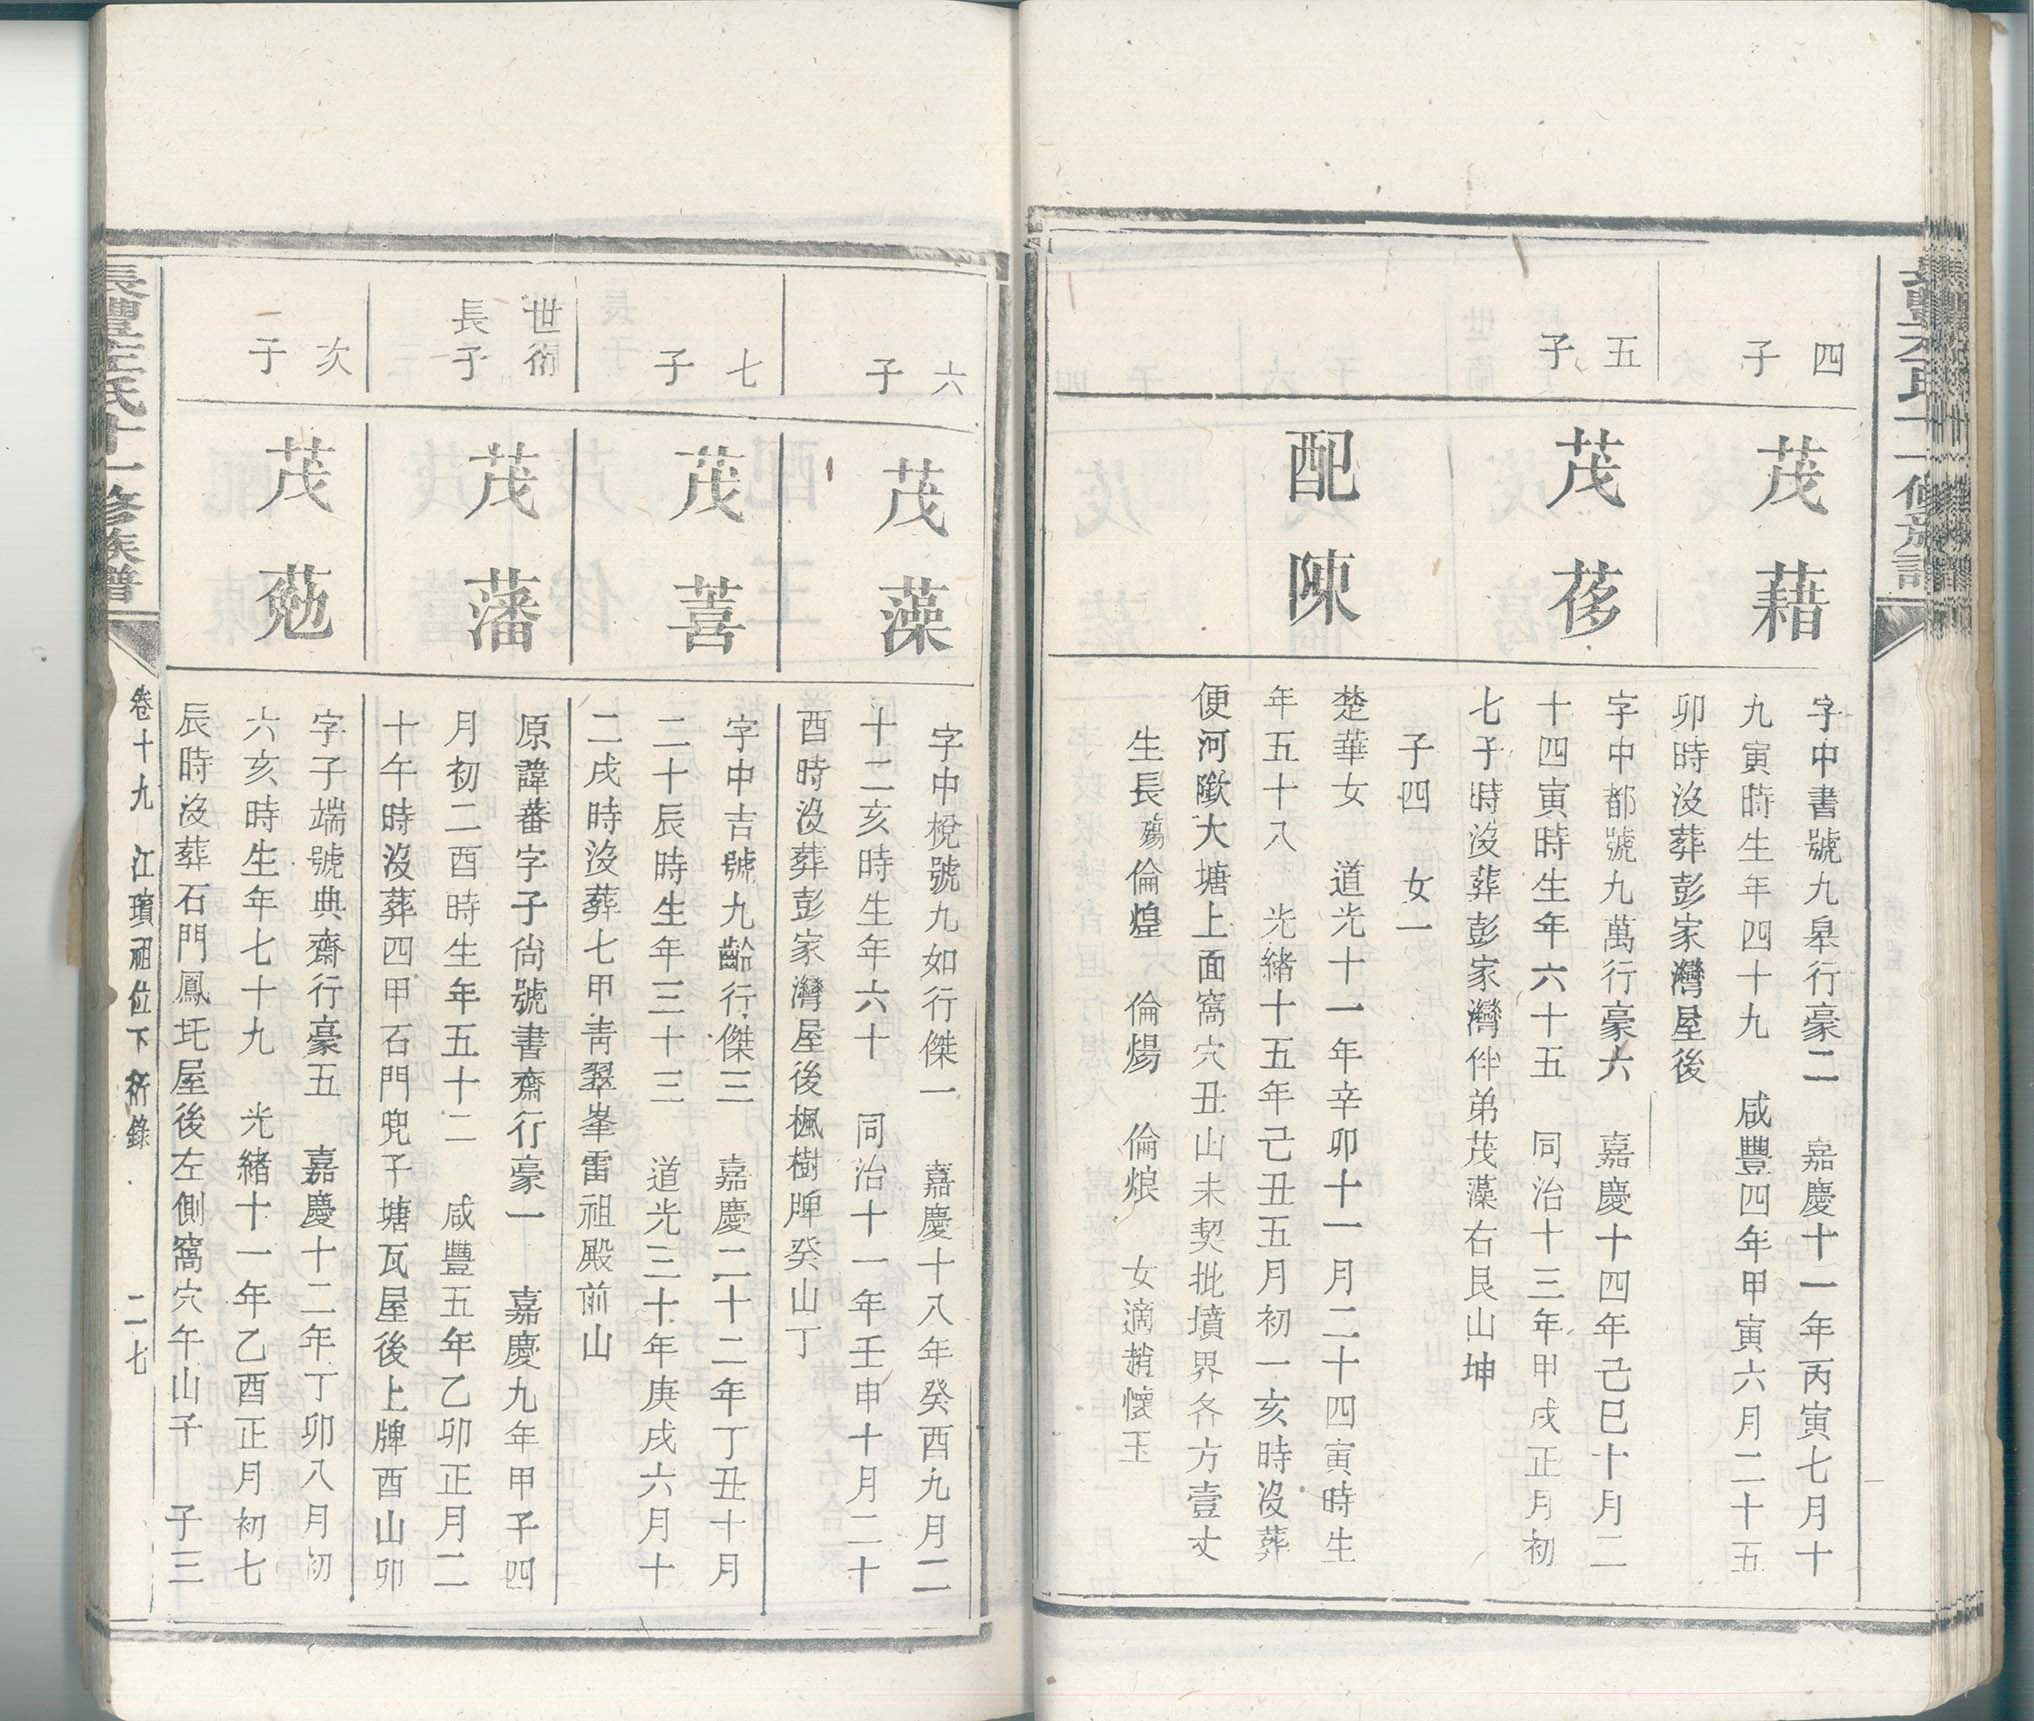 四子
茂藉
字中書號九皋行豪二　嘉慶十一年丙寅七月十
九寅時生年四十九　咸豐四年甲寅六月二十五
卯時沒葬彭家灣屋後
五子
茂䔟
字中都號九萬行豪六　嘉慶十四年己巳十月二
十四寅時生年六十五　同治十三年甲戌正月初
七子時沒葬彭家灣伴弟茂藻右艮山坤
子四　女一
配陳
楚華女　道光十一年辛卯十一月二十四寅時生
年五十八　光緒十五年己丑五月初一亥時沒葬
便河墩大塘上面窩穴丑山未契批墳界各方壹丈
生長殤倫煌　倫煬　倫烺　女適趙懷玉
六子
茂藻
字中棁號九如行傑一　嘉慶十八年癸酉九月二
十二亥時生年六十　同治十一年壬申十月二十
酉時沒葬彭家灣屋後楓樹牌癸山丁
七子
茂萻
字中吉號九齡行傑三　嘉慶二十二年丁丑十月
二十辰時生年三十三　道光三十年庚戌六月十
二戌時沒葬七甲青翠峯雷祖殿前山
世衕
長子
茂藩
原諱蕃字子尙號書齋行豪一　嘉慶九年甲子四
月初二酉時生年五十二　咸豐五年乙卯正月二
十午時沒葬四甲石門兜子塘瓦屋後上牌酉山卯
次子
茂葂
字子端號典齋行豪五　嘉慶十二年丁卯八月初
六亥時生年七十九　光緒十一年乙酉正月初七
辰時沒葬石門鳳圫屋後左側窩穴午山子　子三
氏十一修族譜
卷十九　江瓆祖位下齊錄　二七